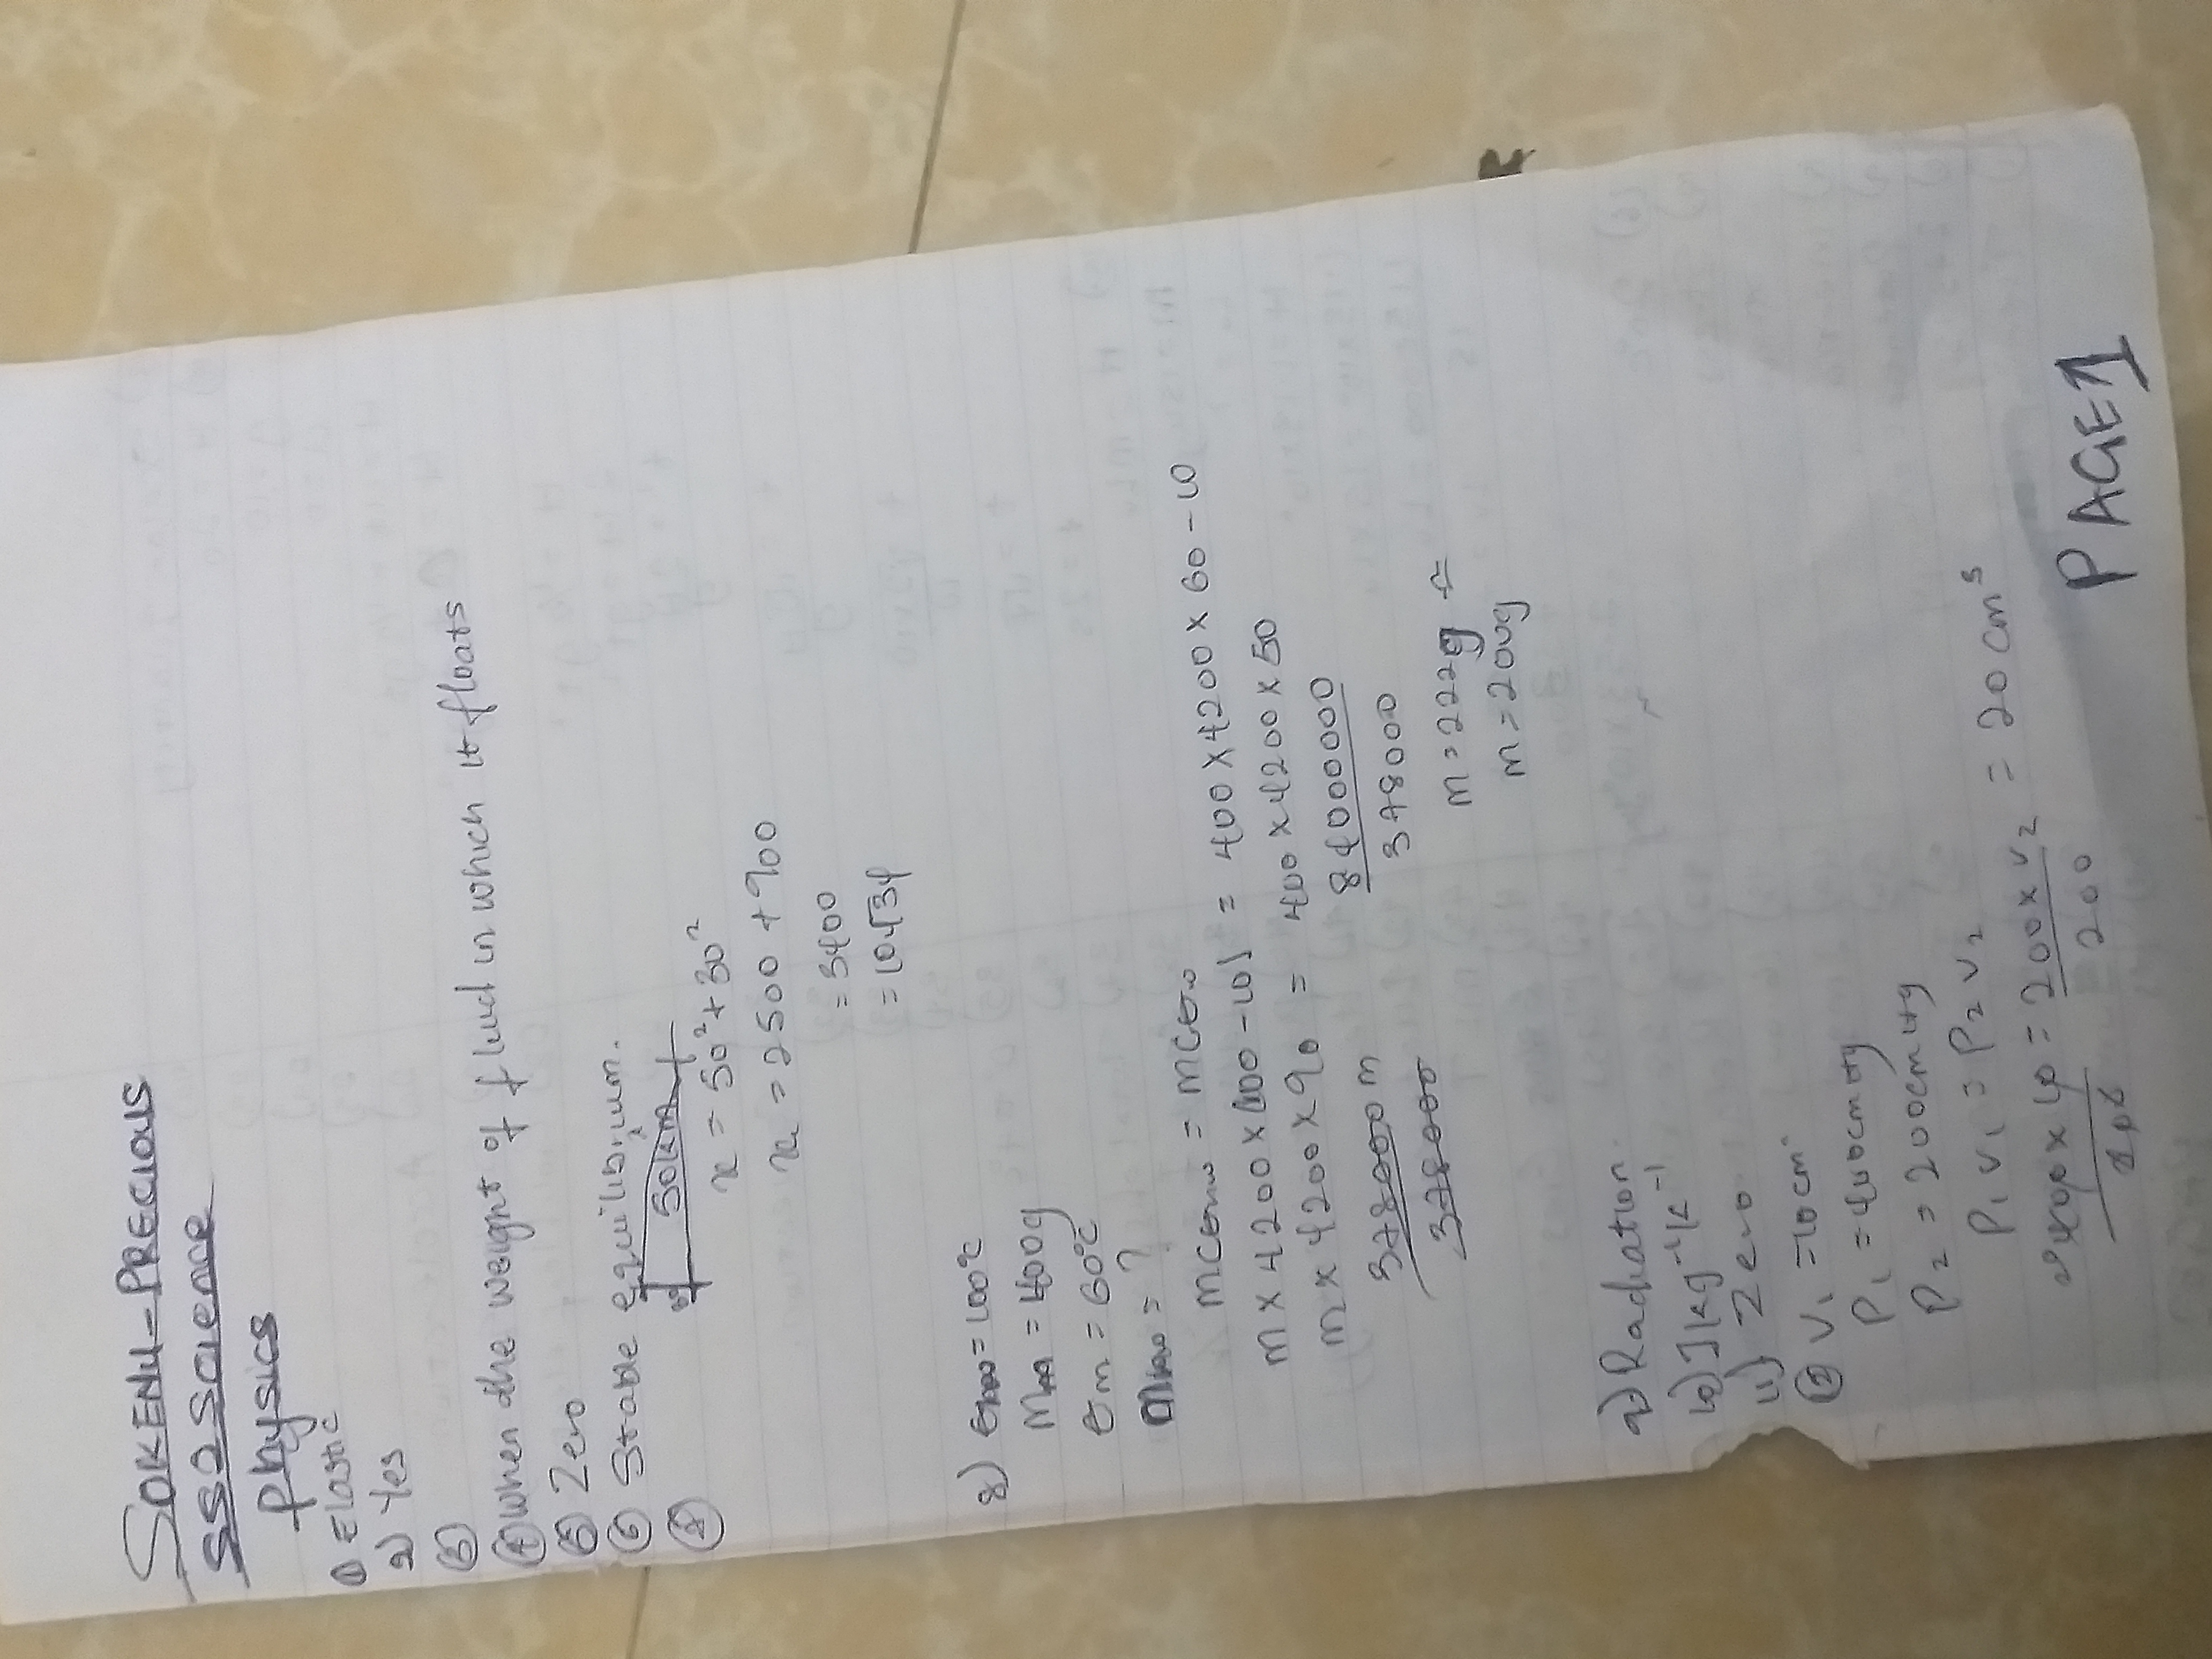 SOKENU-PRECIOUS
SS2 SCIENCE
Physics
1) Elastic
2) Yes
3)
4) When the weight of fluid in which it floats
5) Zero
6) Stable equilibrium.
50km
x = 50² + 30²
x = 2500 + 900
= 3400
= 10√34
8) θhw = 100°C
= 400g
θm = 60°C
Mhw = ?
mcθhw = mcθw
m x 4200 x (100 - 10) = 400 x 4200 x 60 - 10
m x 4200 x 90 = 400 x 4200 x 50
378000 m
84000000
378000
378000
m = 222g ≃
m = 200g
9) Radiation.
10) Jkg⁻¹k⁻¹
11) Zero
12) V₁ = 10cm
P₁ = 400cmHg
P₂ = 200cmHg
P₁V₁ = P₂V₂
400 x 10 = 200 x V₂ = 20cm³
200
200
PAGE 1